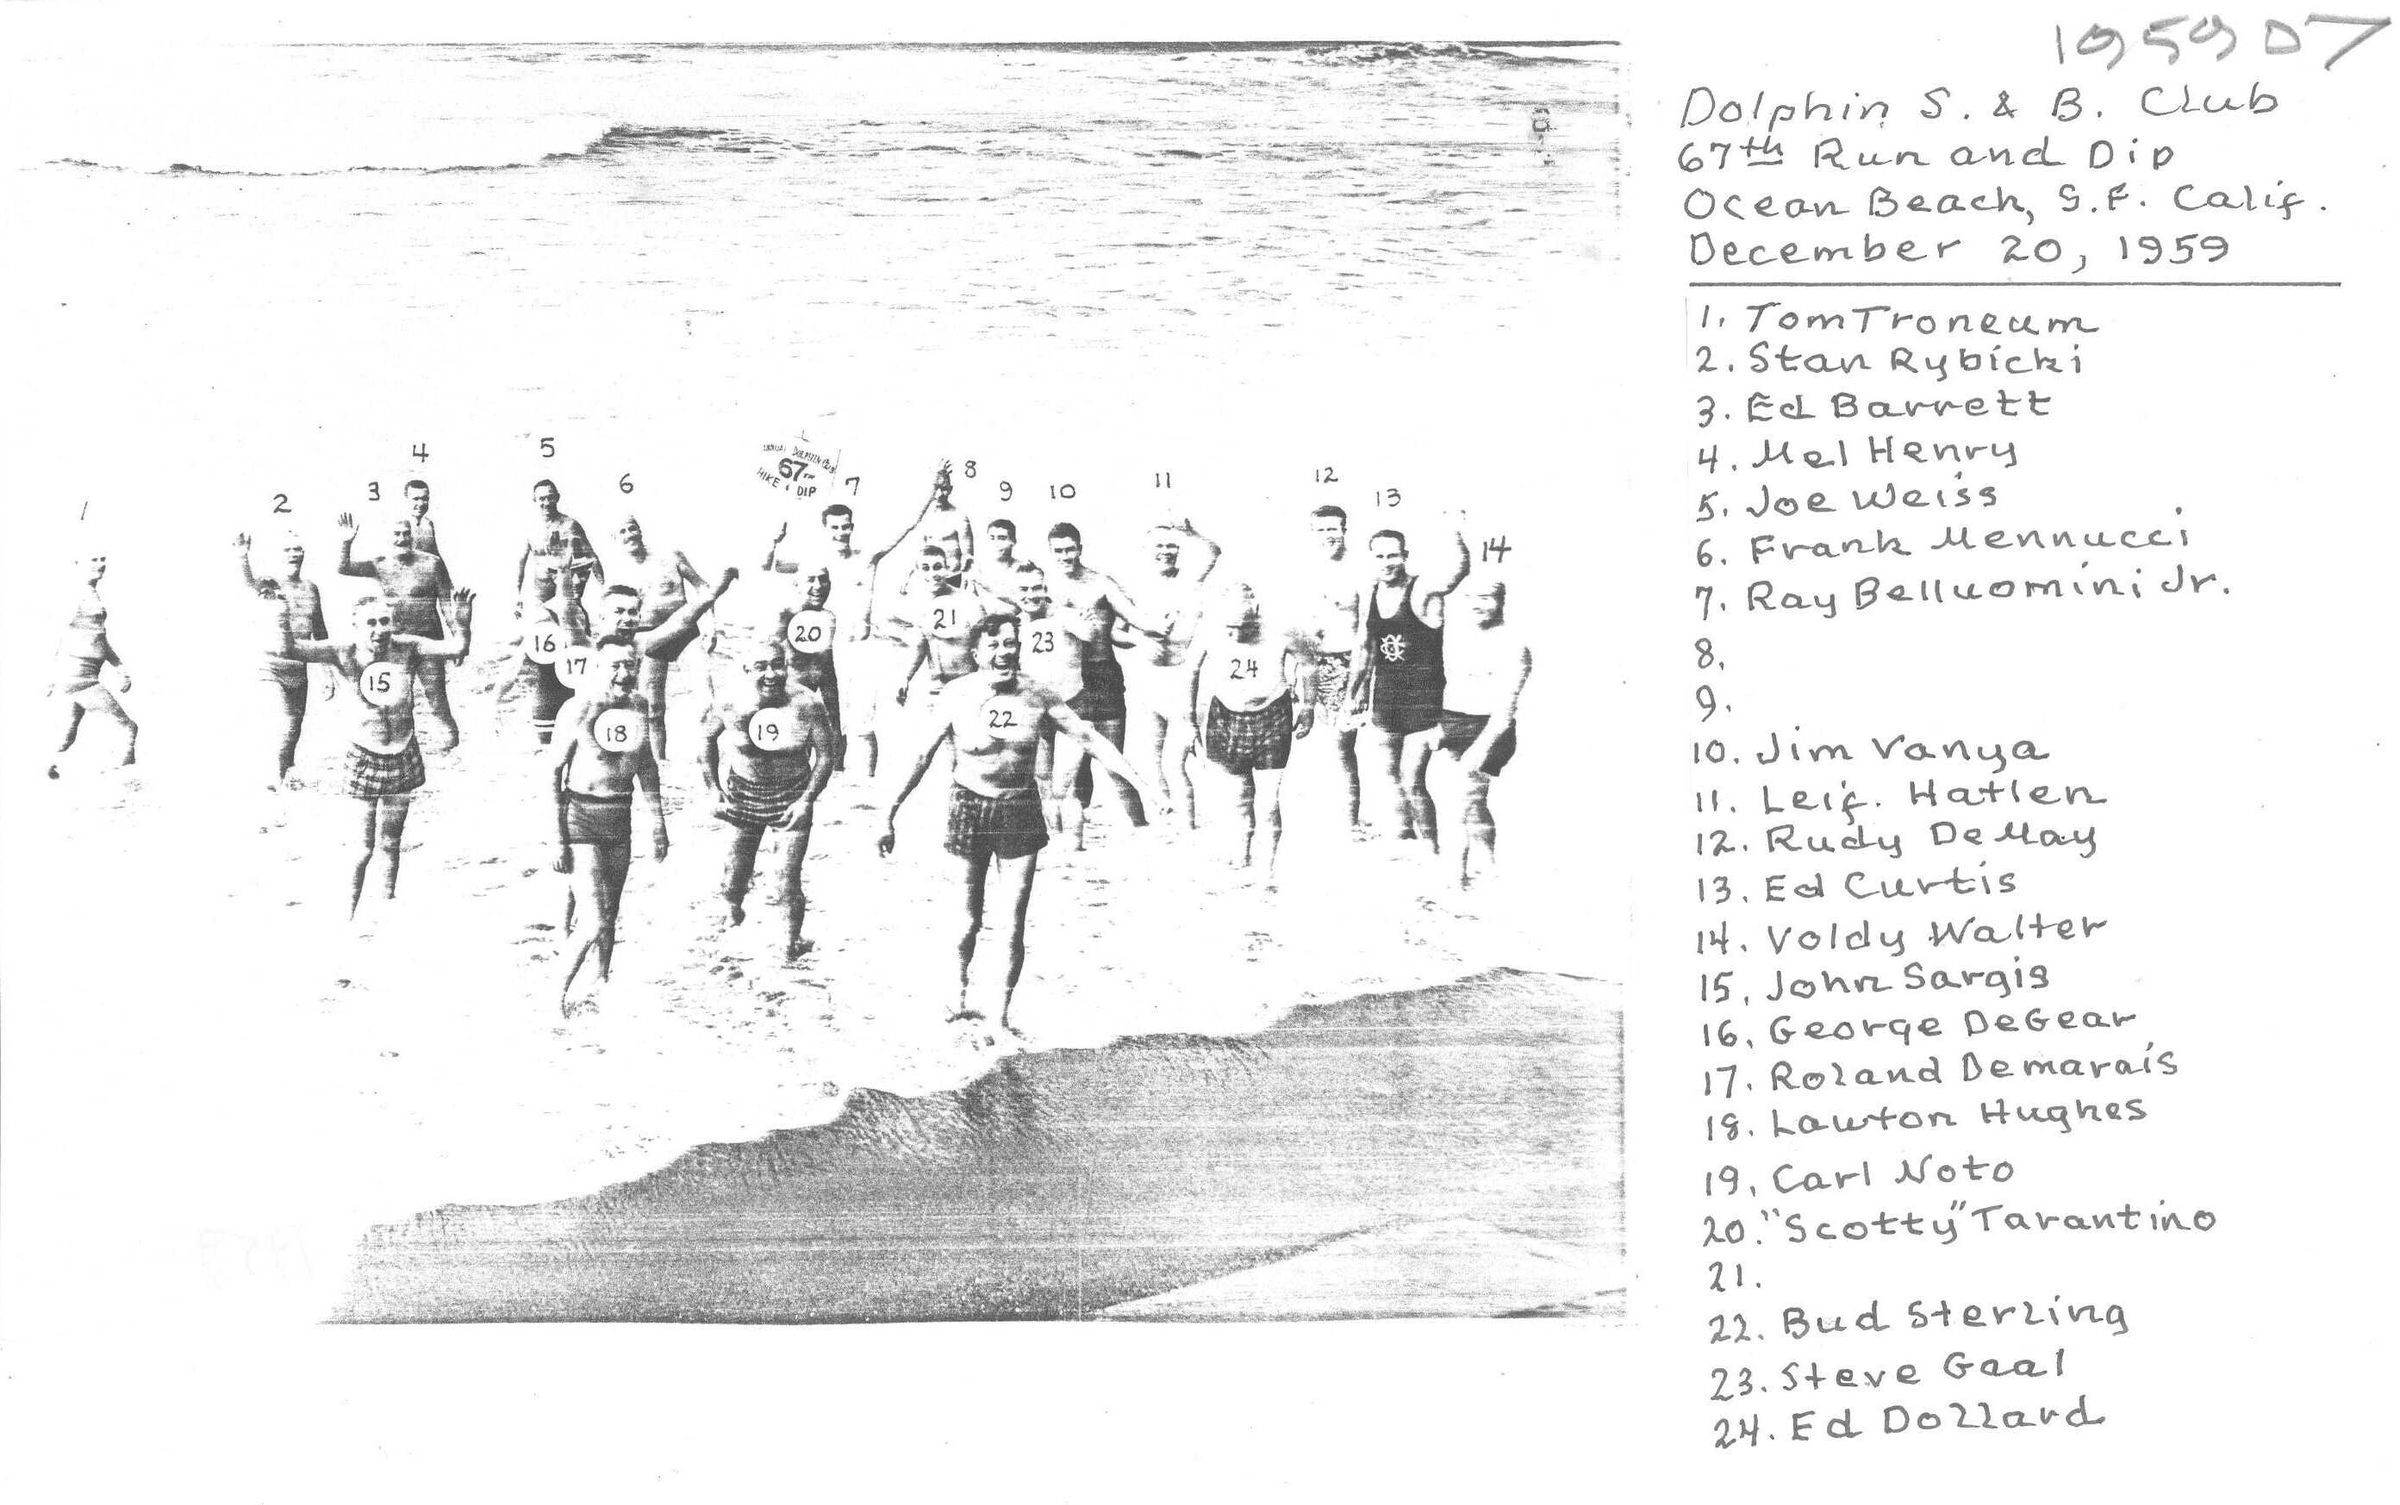 195907
Dolphin S. & B. Club
67th Run and Dip
Ocean Beach, S.F. Calif.
December 20, 1959
1. Tom Troneum
2. Stan Rybicki
3. Ed Barrett
4. Mel Henry
5. Joe Weiss
6. Frank Mennucci
7. Ray Belluomini Jr.
8.
9.
10. Jim Vanya
11. Leif. Hatlen
12. Rudy DeMay
13. Ed Curtis
14. Voldy Walter
15. John Sargis
16. George DeGear
17. Roland Demarais
18. Lawton Hughes
19. Carl Noto
20. "Scotty" Tarantino
21.
22. Bud Sterling
23. Steve Gaal
24. Ed Dollard
1
2
3
4
5
6
DOLPHIN CLUB
67TH
HIKE & DIP
7
8
9
10
11
12
13
14
15
16
17
18
19
20
21
22
23
24